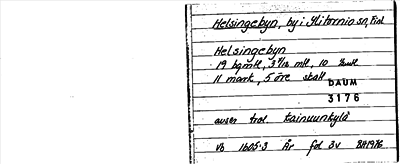 Helsingebyn, by i Ylitornio sn, Finl
Helsingebyn
19 bgmtl, 3 7/12 mtl, 10
11 mark, 5 öre skatt
DAUM
3176
avser trol. Kainuunkylä
Vb 1605:3 År fol 3v